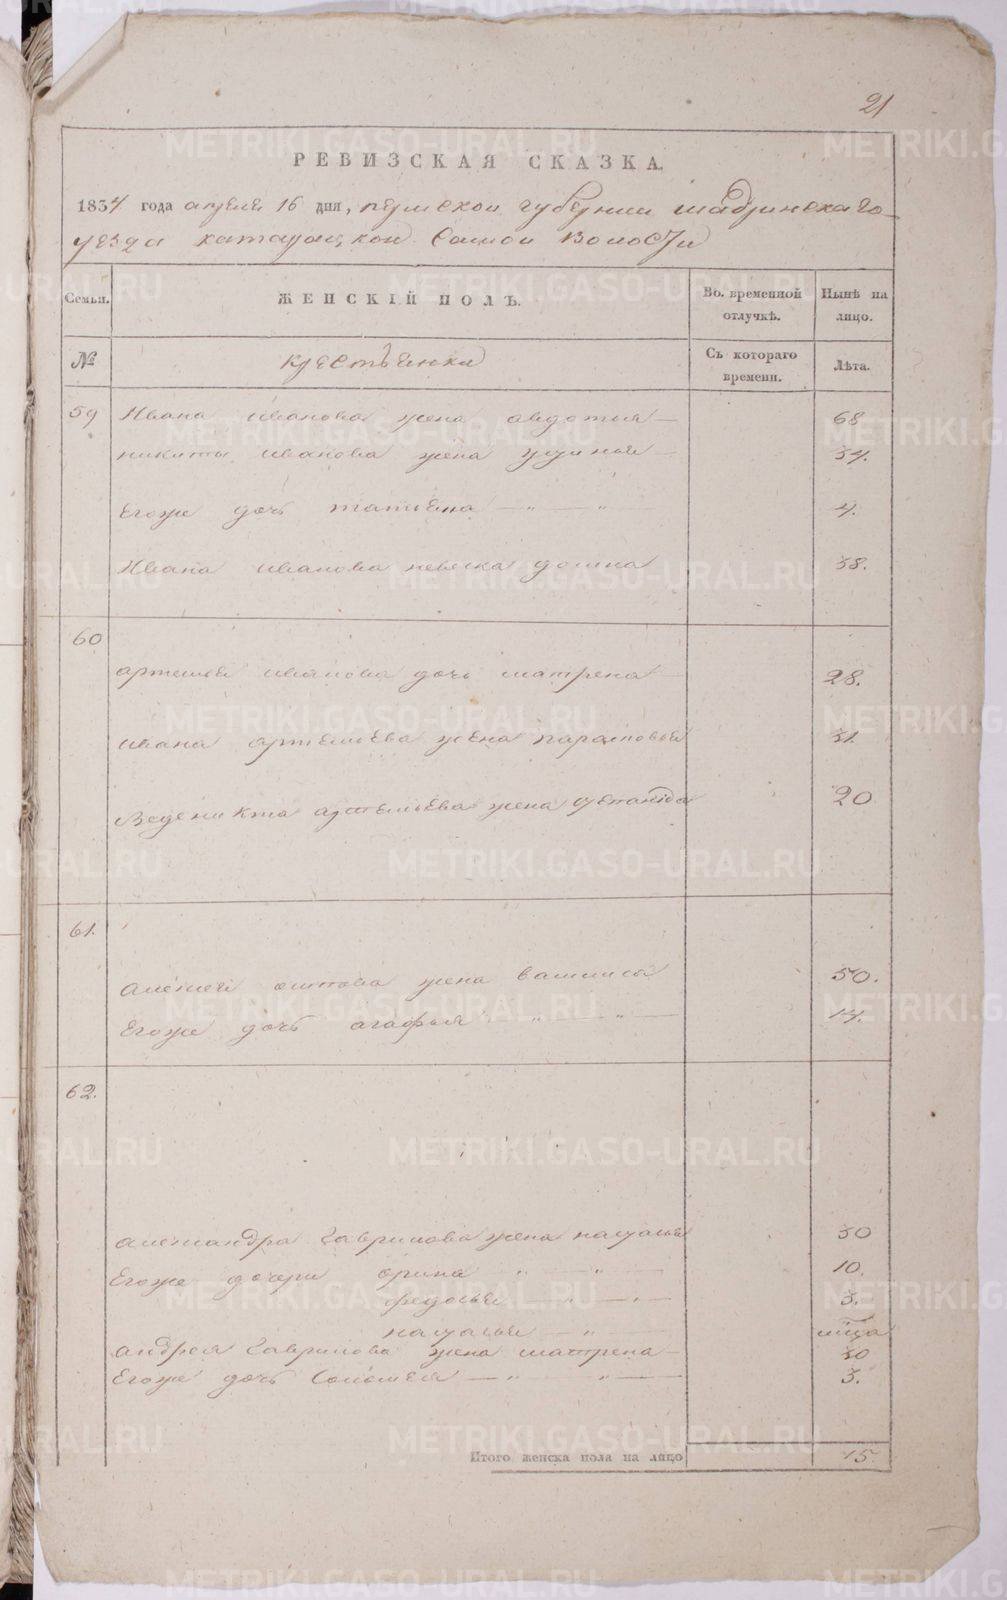 21
РЕВИЗСКАЯ СКАЗКА.
1834 года апреля 16 дня, пермской губернии шадринскаго
уезда катайской самой волости
Семьи. ЖЕНСКІЙ ПОЛЪ. Во. временной отлучкѣ. Нынѣ на лицо.
№ крестьянки Съ котораго времени. Лѣта.
59 Ивана иванова жена авдотья 68
никиты иванова жена устинья 34.
Егоже дочь татьяна 4.
Ивана иванова невеска домна 38.
60
артемья иванова дочь матрена 28.
ивана артемьева жена парасковья 31.
Веденикта артемьева жена степанида 20
61.
алексея осипова жена васылиса 50.
Егоже дочь агафья 14.
62.
александра гаврилова жена наталья 30
Егоже дочери орина 10.
федосья 3.
наталья
андрея гаврилова жена матрена 30
Егоже дочь Соломея 3.
Итого женска пола на лицо 15.
METRIKI.GASO-URAL.RU